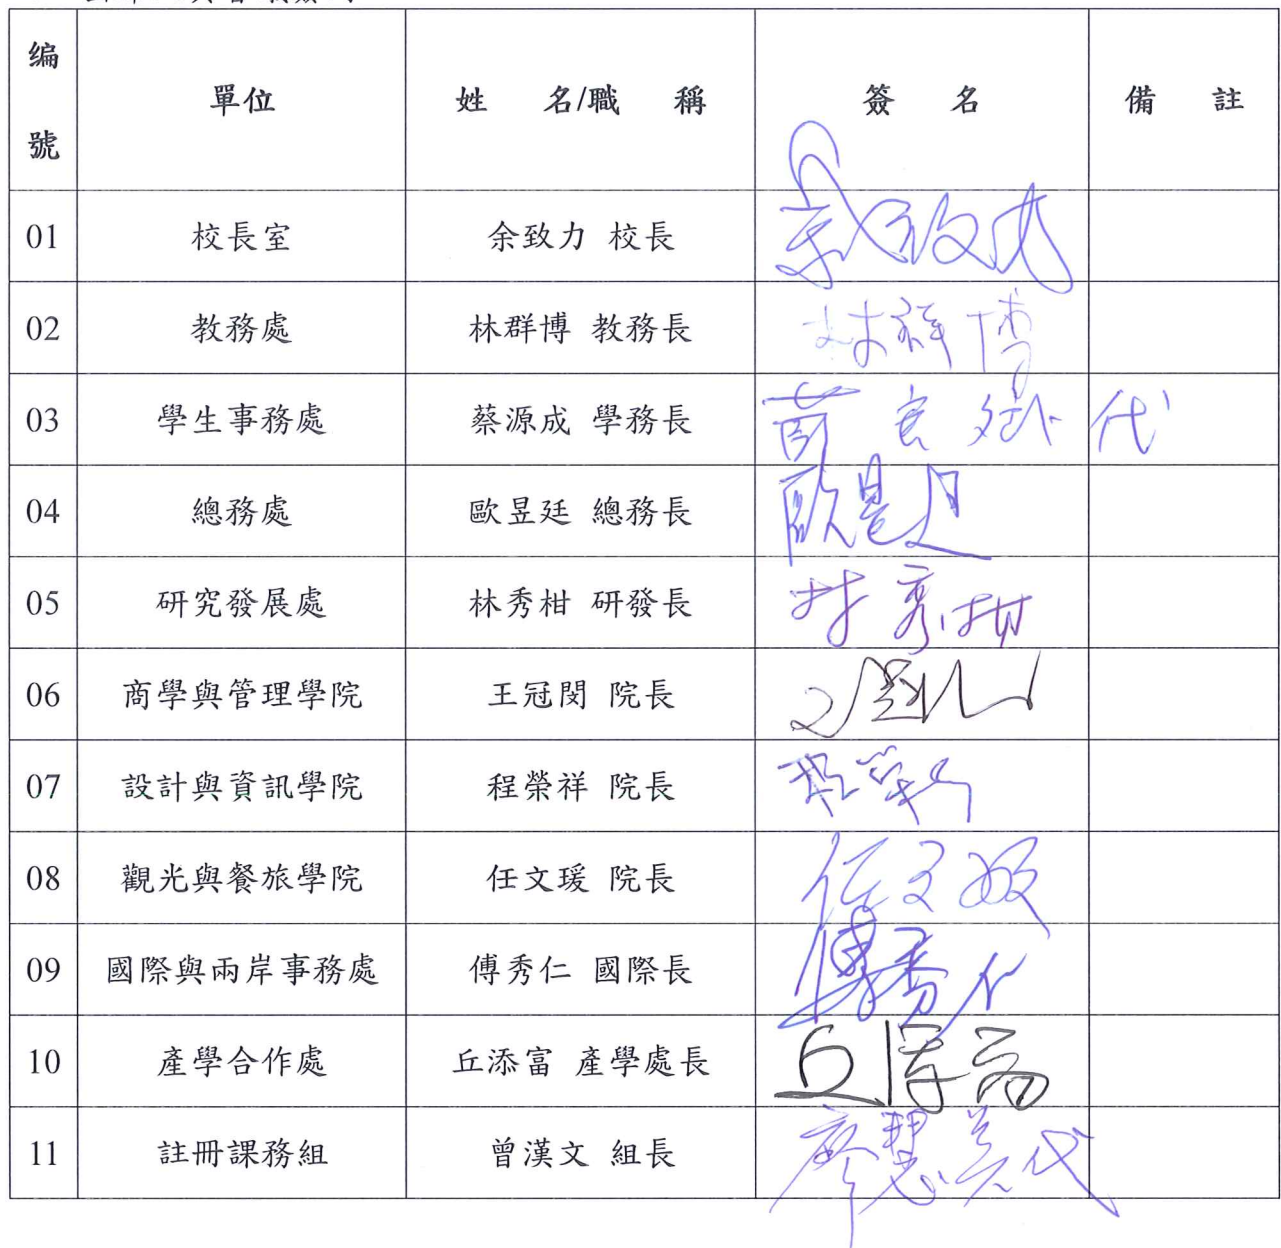 編號 單位 姓名/職稱 簽名 備註
01 校長室 余致力 校長 余致力
02 教務處 林群博 教務長 林群博
03 學生事務處 蔡源成 學務長 代
04 總務處 歐昱廷 總務長 歐昱廷
05 研究發展處 林秀柑 研發長 林秀柑
06 商學與管理學院 王冠閔 院長
07 設計與資訊學院 程榮祥 院長
08 觀光與餐旅學院 任文瑗 院長 任文瑗
09 國際與兩岸事務處 傅秀仁 國際長 傅秀仁
10 產學合作處 丘添富 產學處長 丘添富
11 註冊課務組 曾漢文 組長 廖慧美代